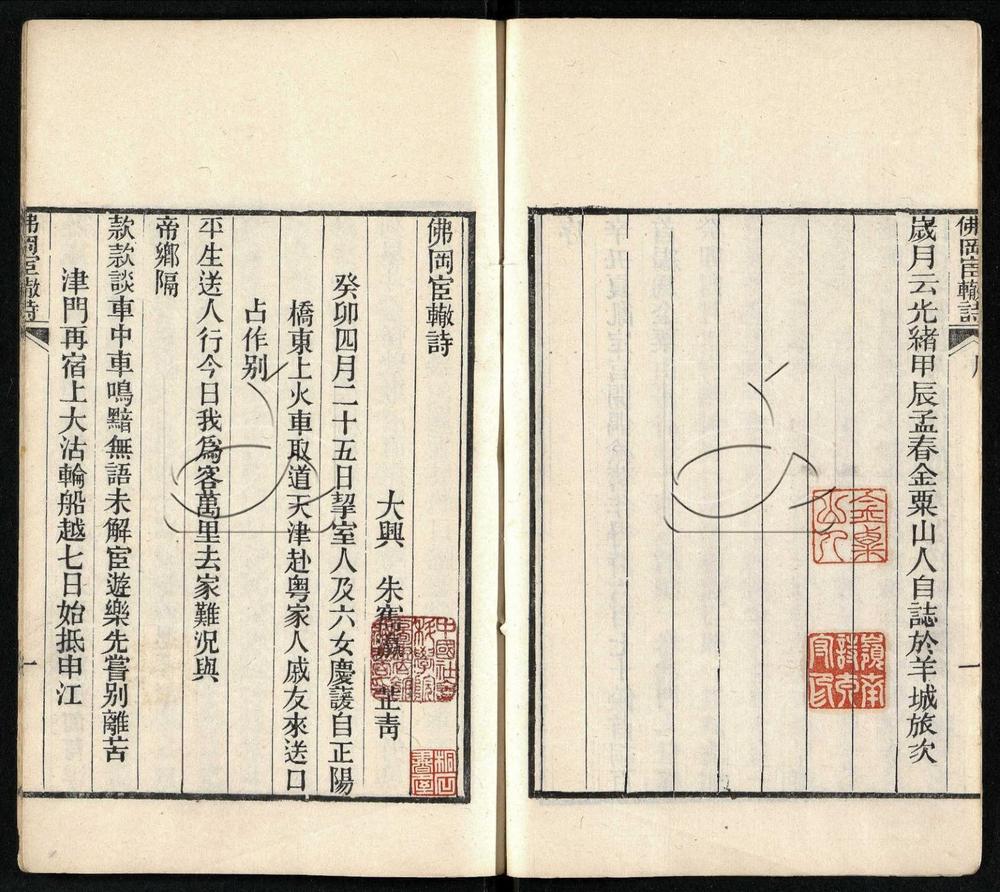 佛岡宦轍詩
一
歲月云光緒甲辰孟春金粟山人自誌於羊城旅次
金粟山人
佛岡宦轍詩
大興　朱寯瀛　芷青
癸卯四月二十五日挈室人及六女慶諼自正陽
橋東上火車取道天津赴粵家人戚友來送口
占作別
平生送人行今日我爲客萬里去家難況與
帝鄉隔
款款談車中車鳴黯無語未解宦遊樂先嘗別離苦
津門再宿上大沽輪船越七日始抵申江
佛岡宦轍詩
一